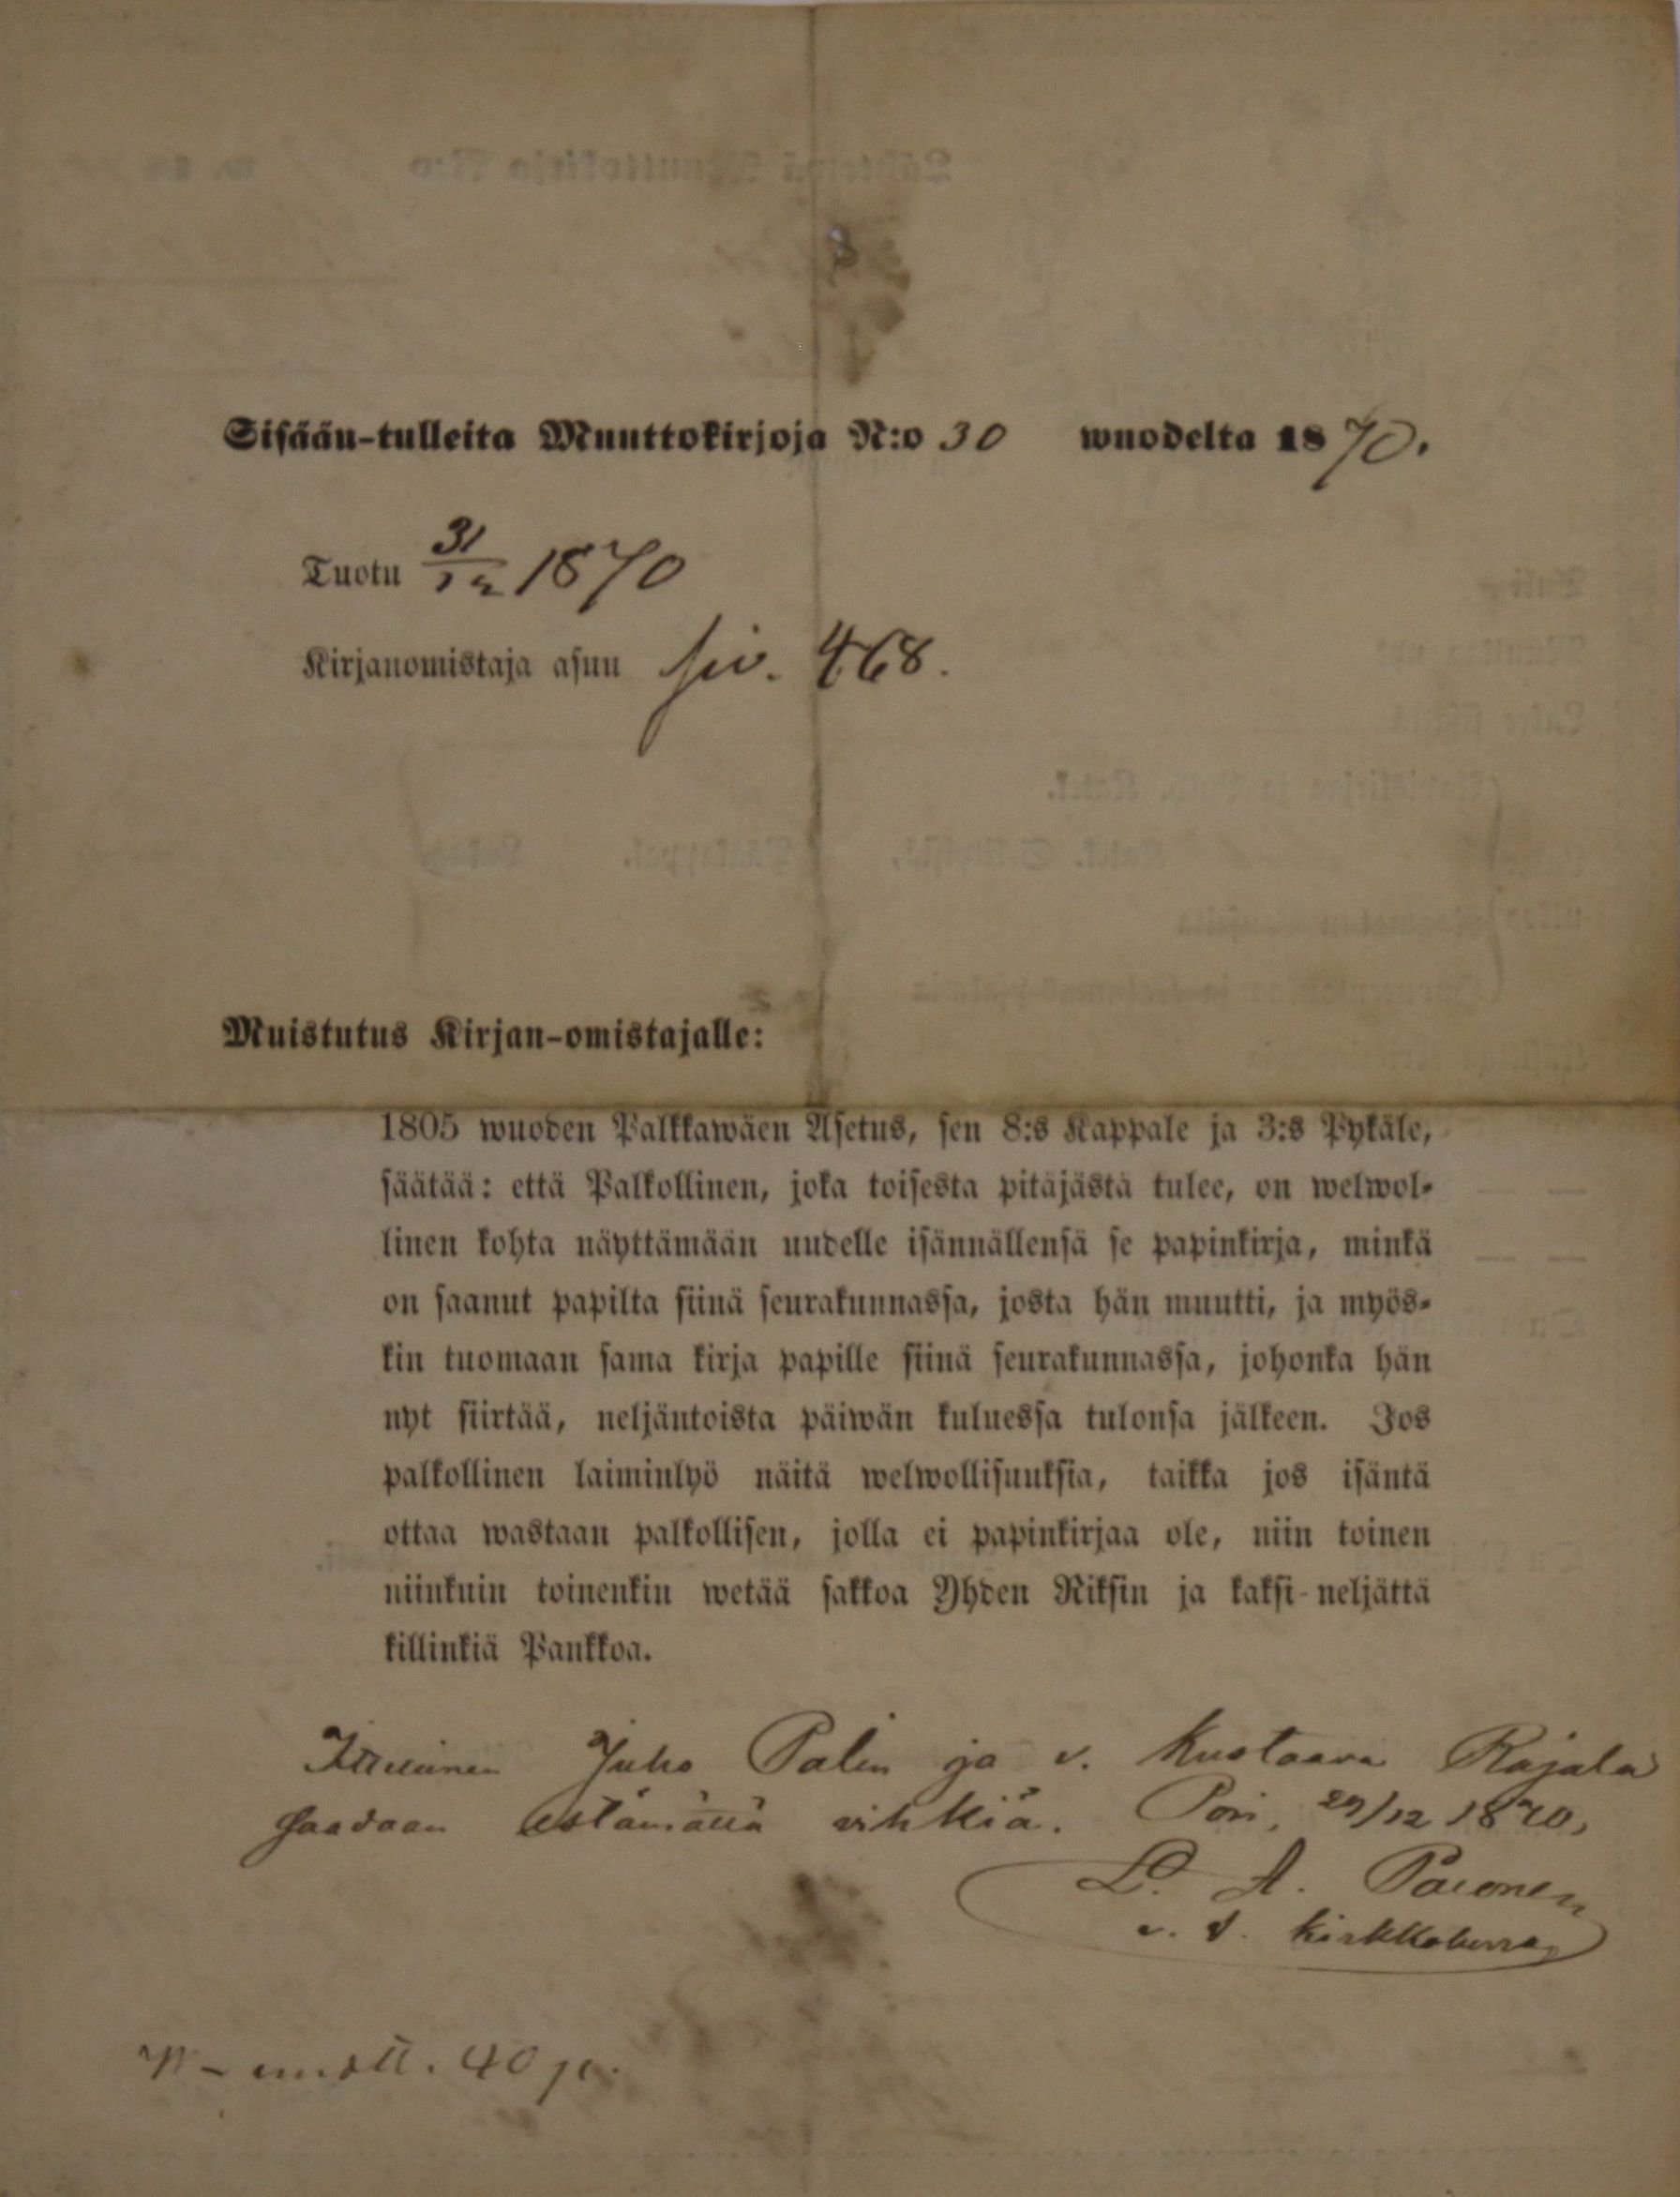 Sisään-tulleita Muuttokirjoja N:o 30 wuodelta 1870.
Tuotu 31/12 1870
Kirjanomistaja asuu siv. 468.
Muistutus Kirjan-omistajalle:
1805 wuoden Palkkawäen Asetus, sen 8:s Kappale ja 3:s Pykäle,
säätää: että Palkollinen, joka toisesta pitäjästä tulee, on welwol-
linen kohta näyttämään uudelle isännällensä se papinkirja, minkä
on saanut papilta siinä seurakunnassa, josta hän muutti, ja myös-
kin tuomaan sama kirja papille siinä seurakunnassa, johonka hän
nyt siirtää, neljäntoista päiwän kuluessa tulonsa jälkeen. Jos
palkollinen laiminlyö näitä welwollisuuksia, taikka jos isäntä
ottaa wastaan palkollisen, jolla ei papinkirjaa ole, niin toinen
niinkuin toinenkin wetää sakkoa Yhden Riksin ja kaksi-neljättä
killinkiä Pankkoa.
Juho Palin ja v. Kustaava Rajala
saadaan estämättä vihkiä. Pori, 29/12 1870,
L. A.
v. t. kirkkoherra
40